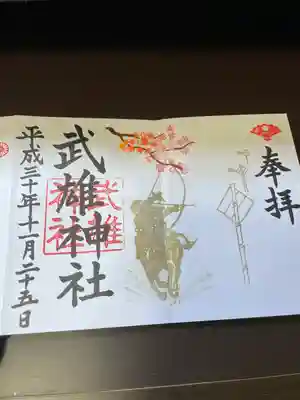 奉拝
武雄神社
武雄神社
平成三十年十一月二十五日